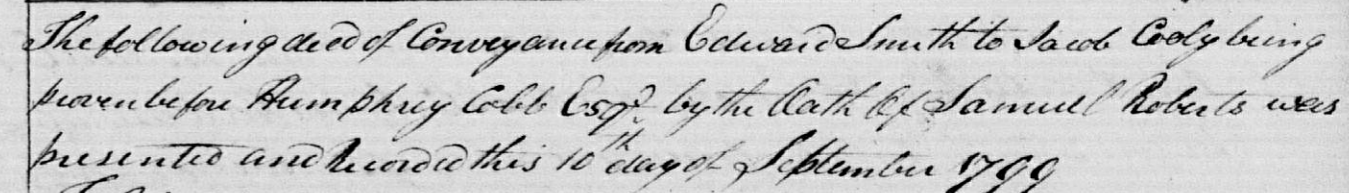 The following deed of Conveyance from Edward Smith to Jacob Cooly being
proven before Humphrey Cobb Esqr. by the Oath of Samuel Roberts was
presented and Recorded this 10th day of September 1799